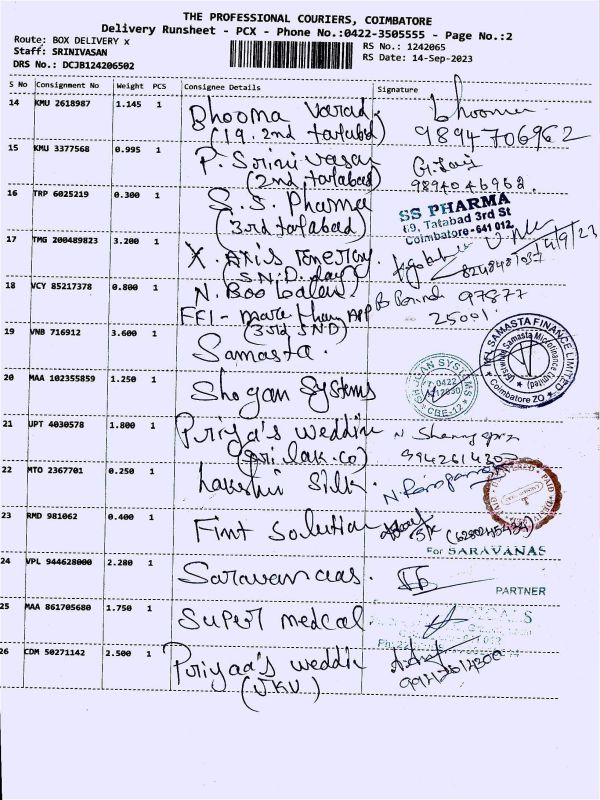 THE PROFESSIONAL COURIERS, COIMBATORE
Delivery Runsheet - PCX - Phone No.:0422-3505555 - Page No.:2
Route: BOX DELIVERY x
RS No.: 1242065
Staff: SRINIVASAN
RS Date: 14-Sep-2023
DRS No.: DCJB124206502
S No Consignment No Weight PCS Consignee Details Signature
14 KMU 2618987 1.145 1 Bhooma Varad
(19. 2nd tatabad) 9894706962
15 KMU 3377568 0.995 1 P. Srinivasan
(2nd tatabad) 9894046962.
16 TRP 6025219 0.300 1 S.S. Pharma
(3rd tatabad)
SS PHARMA
69, Tatabad 3rd St
Coimbatore-641 012.
17 TMG 200489823 3.200 1 X. Axis
14/9/23
18 VCY 85217378 0.800 1 N. Boobalan
97877
25001
(3rd SND)
19 VNB 716912 3.600 1 Samasta.
SAMASTA FINANCE LIMITED
Coimbatore ZO
20 MAA 102355859 1.250 1 Shogan Systems
CBE-12
21 UPT 4030578 1.800 1 Priya's weddin
9942614300
22 MTO 2367701 0.250 1 Lakshmi Silk.
23 RMD 981062 0.400 1 Fint Solution
For SARAVANAS
24 VPL 944628000 2.280 1 Saravanaas.
PARTNER
25 MAA 861705680 1.750 1 Super medcal
26 CDM 50271142 2.500 1 Priyaa's weddin
(JKV)